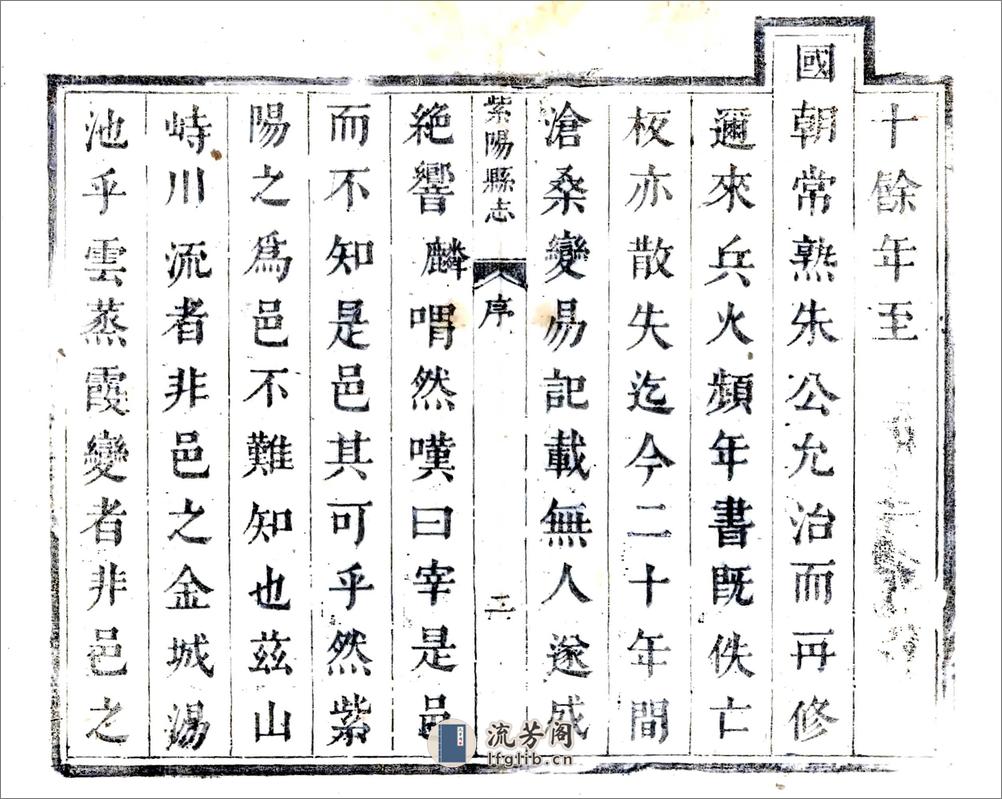 十餘年至
國朝常熟朱公允治而再修
邇來兵火頻年書既佚亡
板亦散失迄今二十年間
滄桑變易記載無人遂成
紫陽縣志
序
二
絕響麟喟然嘆曰宰是邑
而不知是邑其可乎然紫
陽之爲邑不難知也茲山
峙川流者非邑之金城湯
池乎雲蒸霞變者非邑之
流芳阁
lfglib.cn